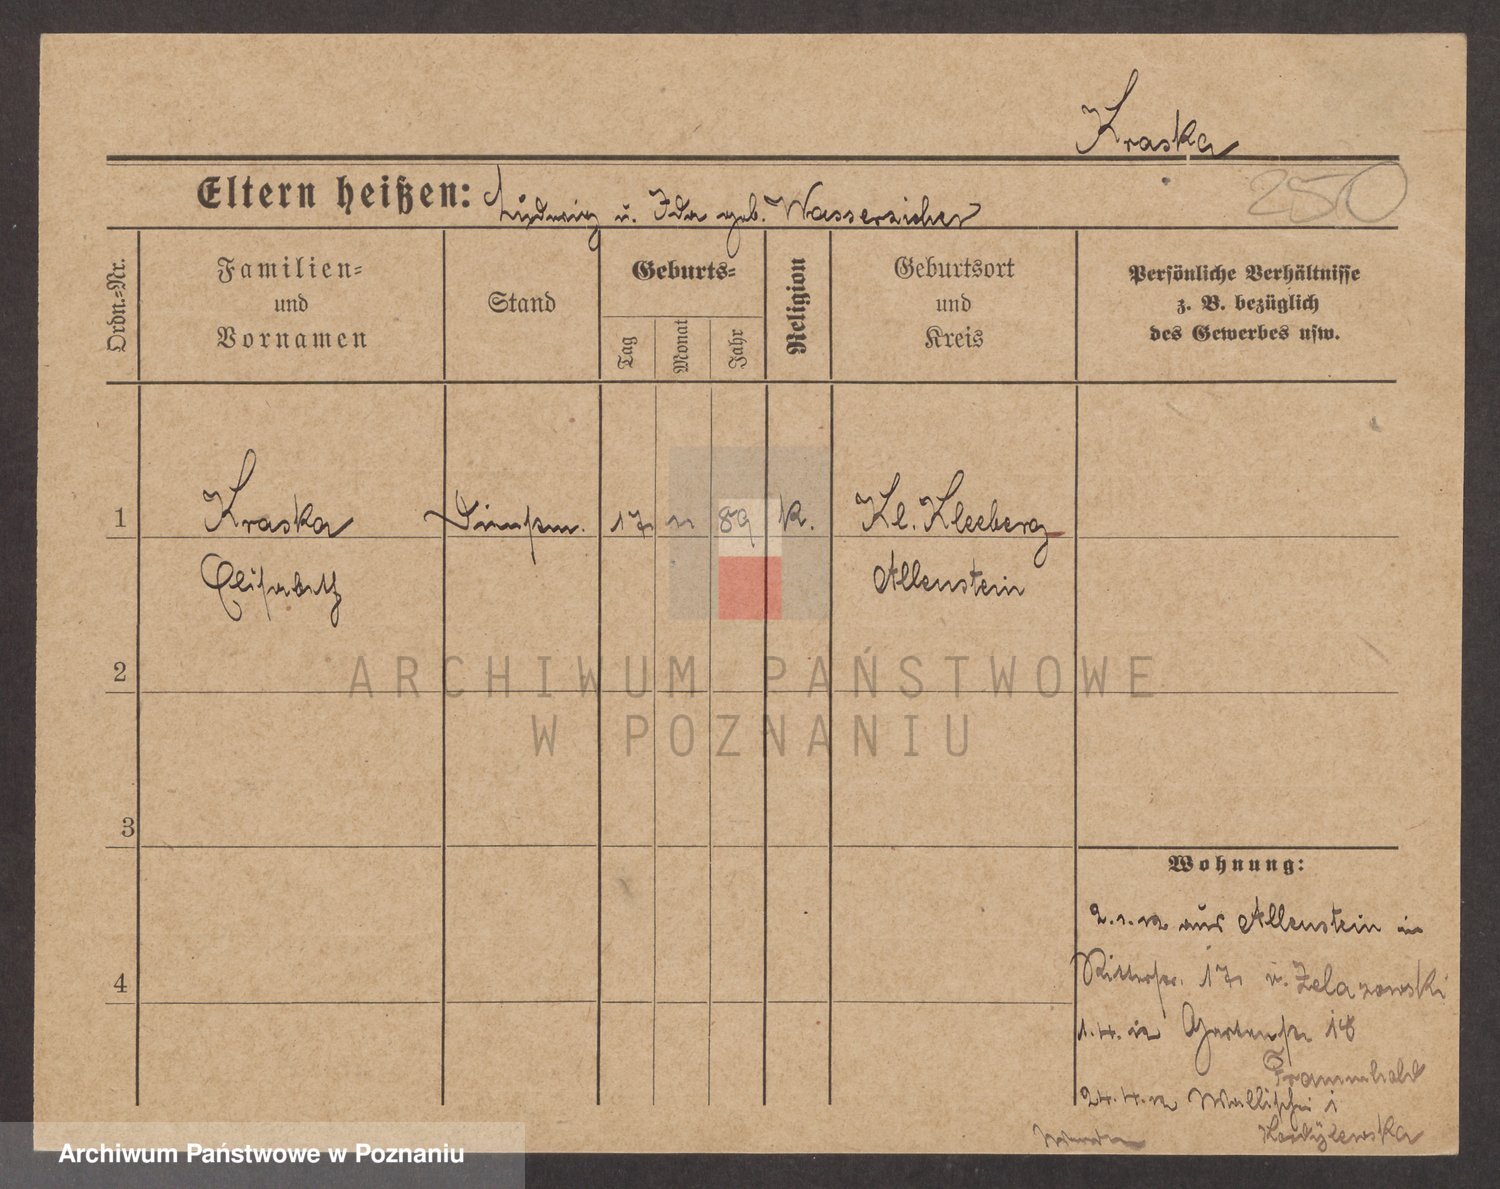 Kraska
250
Eltern heißen: Ludwig u. Ida geb. Wasserzieher
Ordn.=Nr.
Familien=
und
Vornamen
Stand
Geburts=
Tag
Monat
Jahr
Religion
Geburtsort
und
Kreis
Persönliche Verhältnisse
z. B. bezüglich
des Gewerbes usw.
1 Kraska 17 11 89 K. Kl. Kleeberg
Elisabeth Allenstein
2
ARCHIWUM PAŃSTWOWE
W POZNANIU
3
Wohnung:
2.1.12 aus Allenstein in
4
Ritterstr. 17 Zelazowski
1.4.12 Gartenstr 18
24.4.12 Wallischei 1
Archiwum Państwowe w Poznaniu